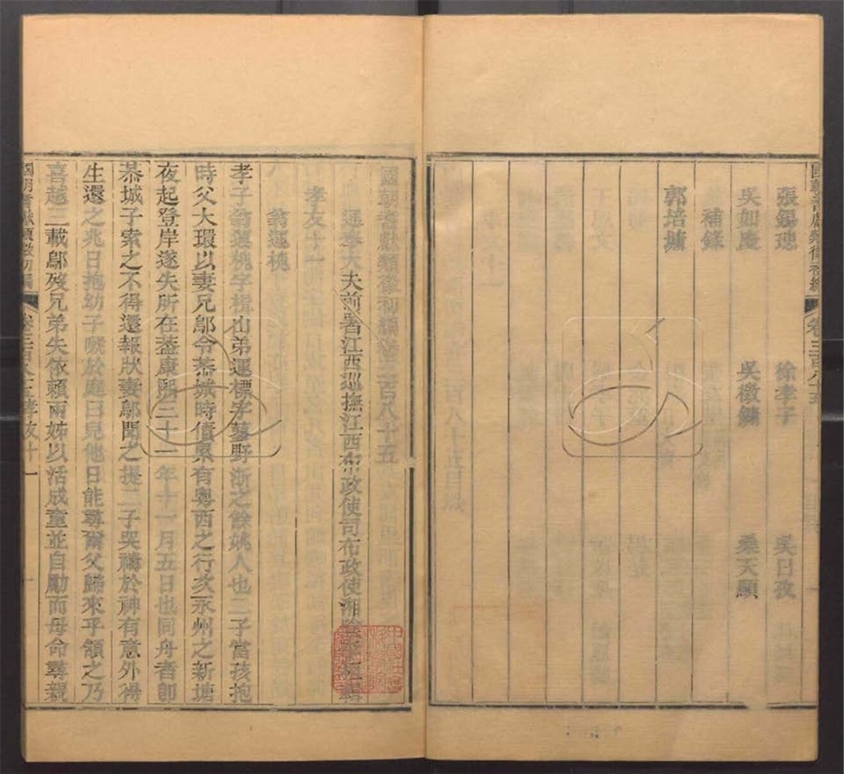 張錫璁 徐孝子 吳日孜
吳如慶 吳徵鏞 桑天顯
補錄
郭培墉
國朝耆獻類徵初編 卷三百八十五
國朝耆獻類徵初編卷三百八十五
通奉大夫前署江西巡撫江西布政使司布政使湘陰李
孝友十一
翁運槐
孝子翁運槐字楫山弟運標字蓼野浙之餘姚人也二子當孩抱
時父大環以妻兄鄔令恭城時債累有粵西之行次永州之新塘
夜起登岸遂失所在葢康熙三十一年十一月五日也同舟者卽
恭城子索之不得還報狀妻鄔聞之提二子哭禱於神有意外得
生還之兆日抱幼子唬於庭曰兒他日能尋爾父歸來乎領之乃
喜越二載鄔歿兄弟失依賴兩姊以活成童並自勵而母命尋親
國朝耆獻類徵初編 卷三百八十五 孝友十一 一